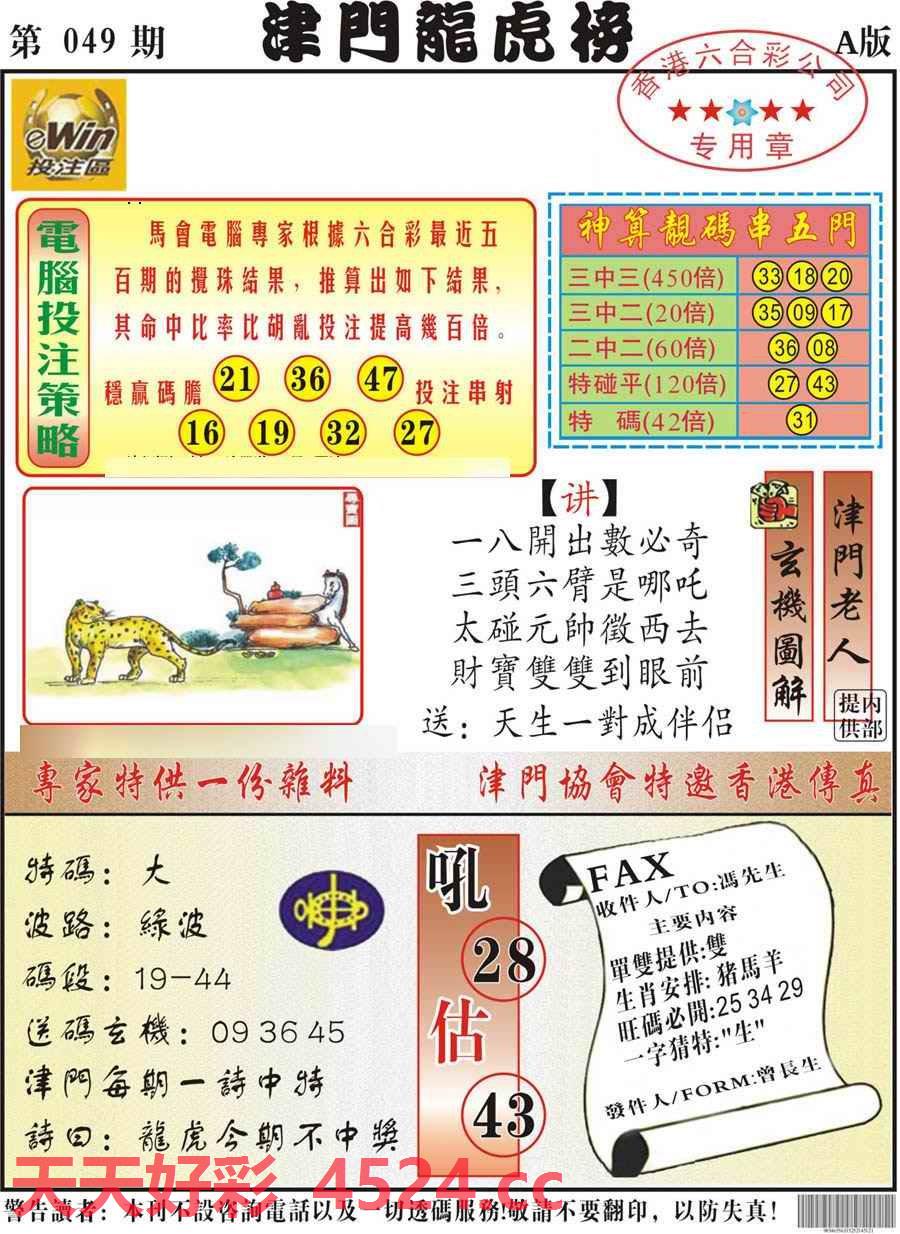 第 049 期
津門龍虎榜
A版
香港六合彩公司
★★★★
专用章
eWin
投注區
電腦投注策略
馬會電腦專家根據六合彩最近五
百期的攪珠結果，推算出如下結果，
其命中比率比胡亂投注提高幾百倍。
穩贏碼膽 21 36 47 投注串射
16 19 32 27
神算靚碼串五門
三中三(450倍) 33 18 20
三中二(20倍) 35 09 17
二中二(60倍) 36 08
特碰平(120倍) 27 43
特 碼(42倍) 31
【讲】
一八開出數必奇
三頭六臂是哪吒
太碰元帥徵西去
財寶雙雙到眼前
送：天生一對成伴侣
玄機圖解
津門老人
内部提供
專家特供一份雜料
津門協會特邀香港傳真
特碼：大
波路：綠波
碼段：19-44
送碼玄機：09 36 45
津門每期一詩中特
詩曰：龍虎今期不中獎
吼
28
估
43
FAX
收件人/TO:馮先生
主要内容
單雙提供:雙
生肖安排:猪馬羊
旺碼必開:25 34 29
一字猜特:"生"
發件人/FORM:曾長生
天天好彩 4524.cc
警告讀者：本刊不設咨詢電話以及一切透碼服務!敬請不要翻印，以防失真！